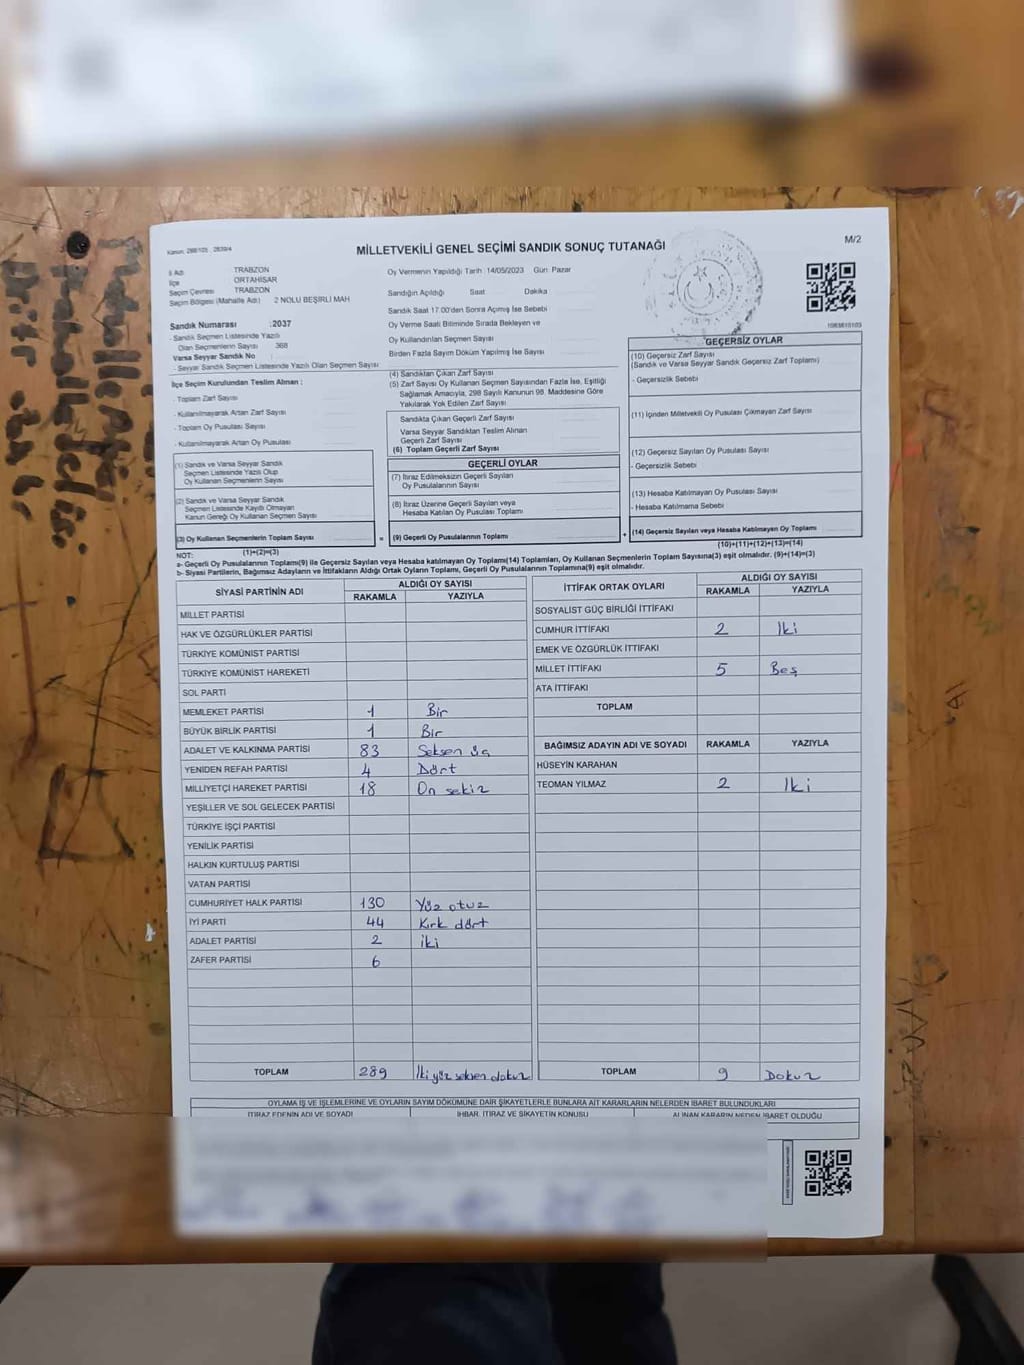 Kanun: 298/105 , 2839/4
MİLLETVEKİLİ GENEL SEÇİMİ SANDIK SONUÇ TUTANAĞI
M/2
İl Adı TRABZON
İlçe ORTAHİSAR
Seçim Çevresi TRABZON
Seçim Bölgesi (Mahalle Adı) 2 NOLU BEŞİRLİ MAH
Sandık Numarası :2037
- Sandık Seçmen Listesinde Yazılı
Olan Seçmenlerin Sayısı 368
Varsa Seyyar Sandık No
- Seyyar Sandık Seçmen Listesinde Yazılı Olan Seçmen Sayısı
İlçe Seçim Kurulundan Teslim Alınan :
- Toplam Zarf Sayısı
- Kullanılmayarak Artan Zarf Sayısı
- Toplam Oy Pusulası Sayısı
- Kullanılmayarak Artan Oy Pusulası
(1) Sandık ve Varsa Seyyar Sandık
Seçmen Listesinde Yazılı Olup
Oy Kullanan Seçmenlerin Sayısı
(2) Sandık ve Varsa Seyyar Sandık
Seçmen Listesinde Kayıtlı Olmayan
Kanun Gereği Oy Kullanan Seçmen Sayısı
(3) Oy Kullanan Seçmenlerin Toplam Sayısı
(1)+(2)=(3)
Oy Vermenin Yapıldığı Tarih :14/05/2023 Gün: Pazar
Sandığın Açıldığı Saat Dakika
Sandık Saat 17.00'den Sonra Açımış İse Sebebi
Oy Verme Saati Bitiminde Sırada Bekleyen ve
Oy Kullandırılan Seçmen Sayısı
Birden Fazla Sayım Döküm Yapılmış İse Sayısı
(4) Sandıktan Çıkan Zarf Sayısı
(5) Zarf Sayısı Oy Kullanan Seçmen Sayısından Fazla İse, Eşitliği
Sağlamak Amacıyla, 298 Sayılı Kanunun 98. Maddesine Göre
Yakılarak Yok Edilen Zarf Sayısı
Sandıkta Çıkan Geçerli Zarf Sayısı
Varsa Seyyar Sandıktan Teslim Alınan
Geçerli Zarf Sayısı
(6) Toplam Geçerli Zarf Sayısı
GEÇERLİ OYLAR
(7) İtiraz Edilmeksizin Geçerli Sayılan
Oy Pusulalarının Sayısı
(8) İtiraz Üzerine Geçerli Sayılan veya
Hesaba Katılan Oy Pusulası Toplamı
= (9) Geçerli Oy Pusulalarının Toplamı +
1063610103
GEÇERSİZ OYLAR
(10) Geçersiz Zarf Sayısı
(Sandık ve Varsa Seyyar Sandık Geçersiz Zarf Toplamı)
- Geçersizlik Sebebi
(11) İçinden Milletvekili Oy Pusulası Çıkmayan Zarf Sayısı
(12) Geçersiz Sayılan Oy Pusulası Sayısı
- Geçersizlik Sebebi
(13) Hesaba Katılmayan Oy Pusulası Sayısı
- Hesaba Katılmama Sebebi
(14) Geçersiz Sayılan veya Hesaba Katılmayan Oy Toplamı
(10)+(11)+(12)+(13)=(14)
NOT:
a- Geçerli Oy Pusulalarının Toplamı(9) ile Geçersiz Sayılan veya Hesaba katılmayan Oy Toplamı(14) Toplamları, Oy Kullanan Seçmenlerin Toplam Sayısına(3) eşit olmalıdır. (9)+(14)=(3)
b- Siyasi Partilerin, Bağımsız Adayların ve İttifakların Aldığı Ortak Oyların Toplamı, Geçerli Oy Pusulalarının Toplamına(9) eşit olmalıdır.
SİYASİ PARTİNİN ADI ALDIĞI OY SAYISI
RAKAMLA YAZIYLA
MİLLET PARTİSİ
HAK VE ÖZGÜRLÜKLER PARTİSİ
TÜRKİYE KOMÜNİST PARTİSİ
TÜRKİYE KOMÜNİST HAREKETİ
SOL PARTİ
MEMLEKET PARTİSİ 1 Bir
BÜYÜK BİRLİK PARTİSİ 1 Bir
ADALET VE KALKINMA PARTİSİ 83 Seksen üç
YENİDEN REFAH PARTİSİ 4 Dört
MİLLİYETÇİ HAREKET PARTİSİ 18 On sekiz
YEŞİLLER VE SOL GELECEK PARTİSİ
TÜRKİYE İŞÇİ PARTİSİ
YENİLİK PARTİSİ
HALKIN KURTULUŞ PARTİSİ
VATAN PARTİSİ
CUMHURİYET HALK PARTİSİ 130 Yüz otuz
İYİ PARTİ 44 Kırk dört
ADALET PARTİSİ 2 iki
ZAFER PARTİSİ 6
TOPLAM 289 İki yüz seksen dokuz
İTTİFAK ORTAK OYLARI ALDIĞI OY SAYISI
RAKAMLA YAZIYLA
SOSYALİST GÜÇ BİRLİĞİ İTTİFAKI
CUMHUR İTTİFAKI 2 İki
EMEK VE ÖZGÜRLÜK İTTİFAKI
MİLLET İTTİFAKI 5 Beş
ATA İTTİFAKI
TOPLAM
BAĞIMSIZ ADAYIN ADI VE SOYADI RAKAMLA YAZIYLA
HÜSEYİN KARAHAN
TEOMAN YILMAZ 2 İki
TOPLAM 9 Dokuz
OYLAMA İŞ VE İŞLEMLERİNE VE OYLARIN SAYIM DÖKÜMÜNE DAİR ŞİKAYETLERLE BUNLARA AİT KARARLARIN NELERDEN İBARET BULUNDUKLARI
İTİRAZ EDENİN ADI VE SOYADI İHBAR, İTİRAZ VE ŞİKAYETİN KONUSU ALINAN KARARIN NEDEN İBARET OLDUĞU